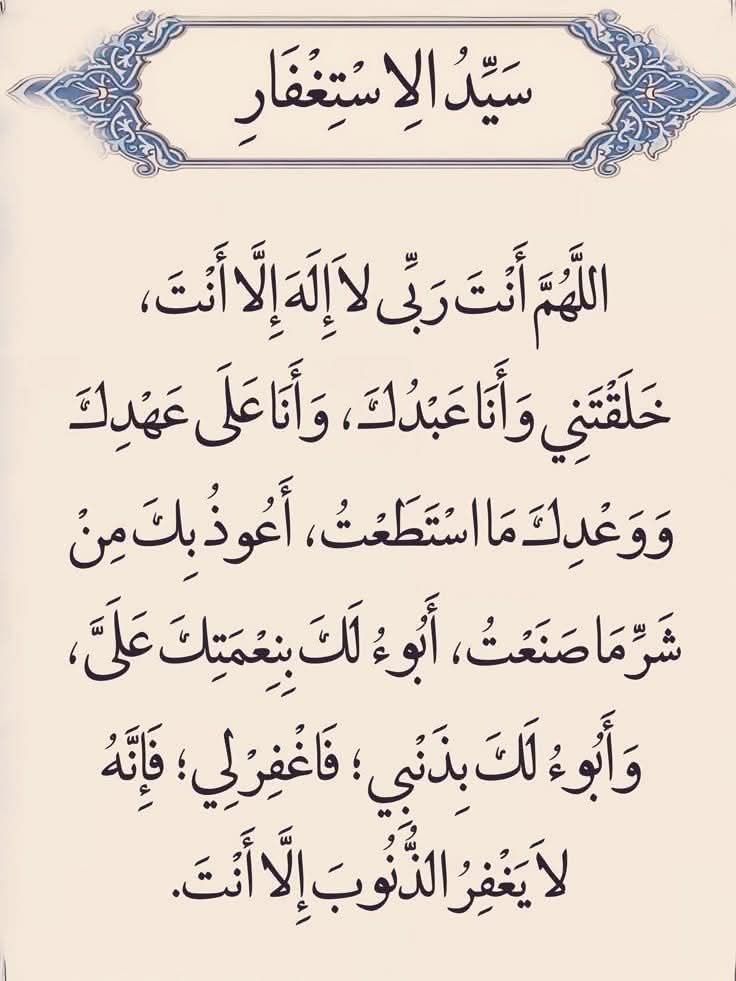 سَيِّدُ الِاسْتِغْفَارِ
اللَّهُمَّ أَنْتَ رَبِّى لاَ إِلَهَ إِلَّا أَنْتَ،
خَلَقْتَنِي وَأَنَا عَبْدُكَ، وَأَنَا عَلَى عَهْدِكَ
وَوَعْدِكَ مَا اسْتَطَعْتُ، أَعُوذُ بِكَ مِنْ
شَرِّ مَا صَنَعْتُ، أَبُوءُ لَكَ بِنِعْمَتِكَ عَلَىَّ،
وَأَبُوءُ لَكَ بِذَنْبِي؛ فَاغْفِرْ لِي؛ فَإِنَّهُ
لاَ يَغْفِرُ الذُّنُوبَ إِلَّا أَنْتَ.